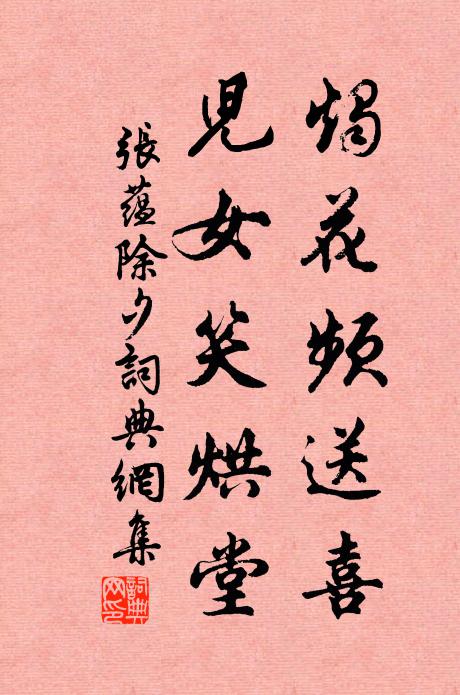 燭花頻送喜
兒女笑烘堂
張蘊除夕詞典網集
詞典網印